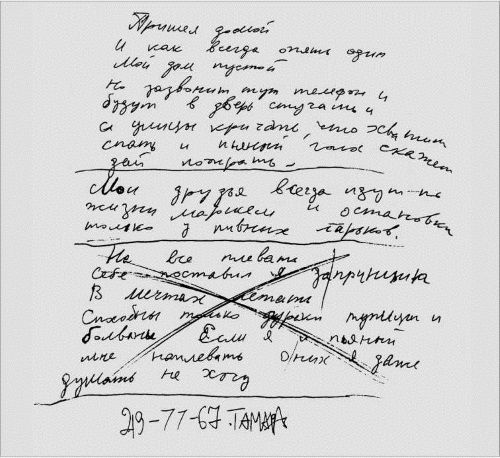 Пришел домой
И как всегда опять один
Мой дом пустой
Но зазвонит тут телефон и
будут в дверь стучать и
с улицы кричать, что хватит
спать и пьяный голос скажет
дай пожрать.
Мои друзья всегда идут по
жизни маршем и остановки
только у пивных ларьков.
На все плевать
Себе поставил я
В мечтах летать
Способны только дураки тупицы и
болваны Если я и пьяный
мне наплевать О них я даже
думать не хочу
219-77-67. ТАМАРА